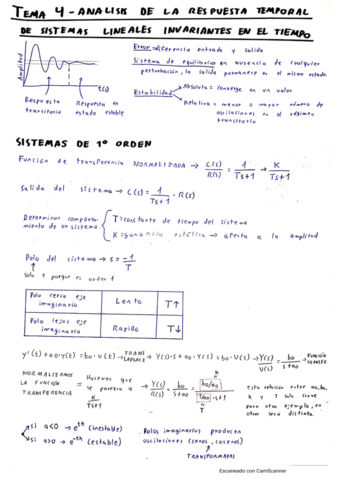 TEMA 4 - ANALISIS DE LA RESPUESTA TEMPORAL
DE SISTEMAS LINEALES INVARIANTES EN EL TIEMPO
Error = diferencia entrada y salida
Sistema de equilibrio = en ausencia de cualquier
perturbación, la salida permanece en el mismo estado
Estabilidad
Absoluta = converge en un valor
Relativa = menor o mayor número de
oscilaciones en el régimen
transitorio
t(s)
Respuesta transitoria
Respuesta en estado estable
SISTEMAS DE 1º ORDEN
Función de transferencia NORMALIZADA → C(s)/R(s) = 1/Ts+1 → K/Ts+1
Salida del sistema → C(s) = 1/Ts+1 · R(s)
Determinar comportamiento de un sistema
T = constante de tiempo del sistema
K = ganancia estática → afecta a la amplitud
Polo del sistema → s = -1/T
solo 1 porque es orden 1
Polo cerca eje imaginario | Lento | T↑
Polo lejos eje imaginario | Rapido | T↓
y'(t) + a0·y(t) = b0·u(t) → TRANS LAPLACE → Y(s)·s + a0·Y(s) = b0·U(s) → Y(s)/U(s) = b0/s+a0 → FUNCIÓN TRANSFER
NORMALIZAMOS LA FUNCIÓN TRANSFERENCIA = Hacemos que se parezca a K/Ts+1 → Y(s)/R(s) = b0/s+a0 = b0/a0 / 1/a0·s+1
K
T
esta relación entre a0, b0,
K y T solo sirve
para este ejemplo, en
otro será distinta.
si a<0 → e^th (inestable)
si a>0 → e^-th (estable)
Polos imaginarios producen
oscilaciones (senos, cosenos)
TRANSFORMADAS
Escaneado con CamScanner